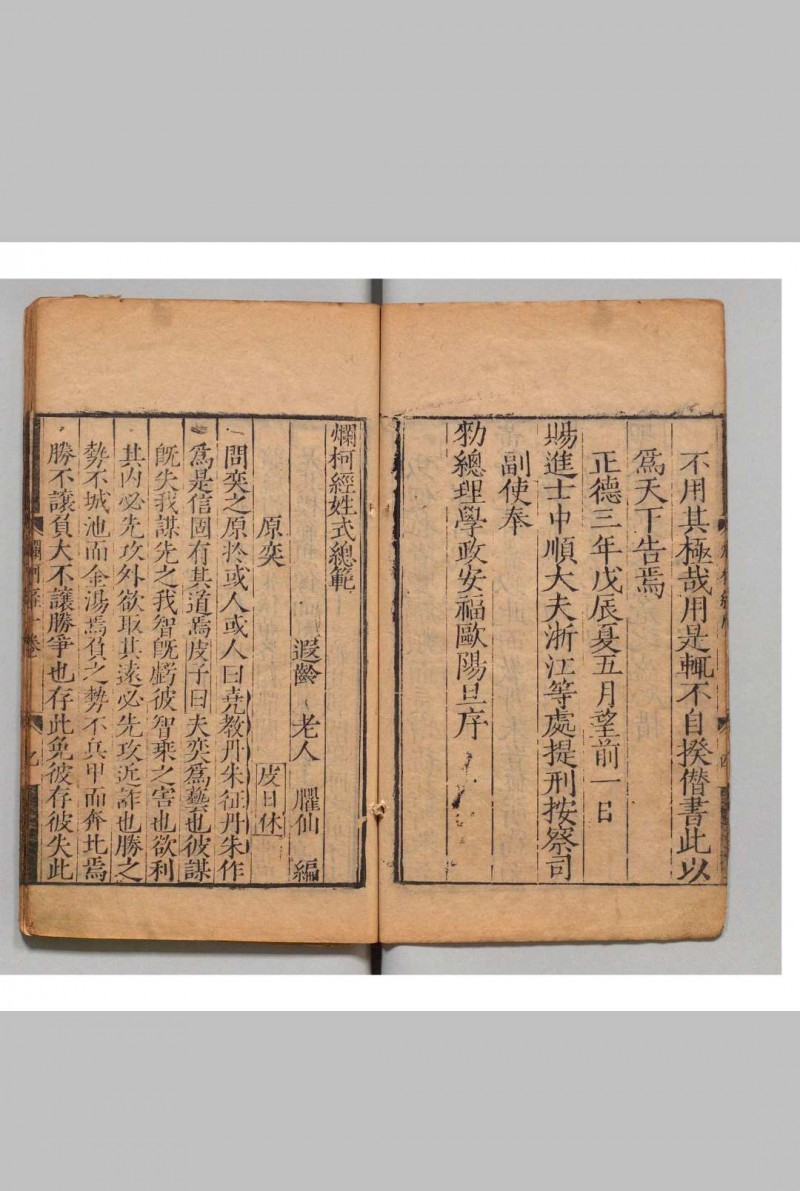 不用其極哉用是輒不自揆僭書此以
爲天下告焉
正德三年戊辰夏五月望前一日
賜進士中順大夫浙江等處提刑按察司
副使奉
勑總理學政安福歐陽旦序
爛柯經姓式總範
遐齡老人臞仙編
原奕
皮日休
問奕之原扵或人或人曰堯教丹朱征丹朱作
爲是信固有其道焉皮子曰夫奕爲藝也彼謀
旣失我謀先之我智旣虧彼智乘之害也欲利
其内必先攻外欲取其遠必先攻近詐也勝之
勢不城池而金湯焉負之勢不兵甲而奔北焉
勝不讓負大不讓勝爭也存此免彼存彼失此